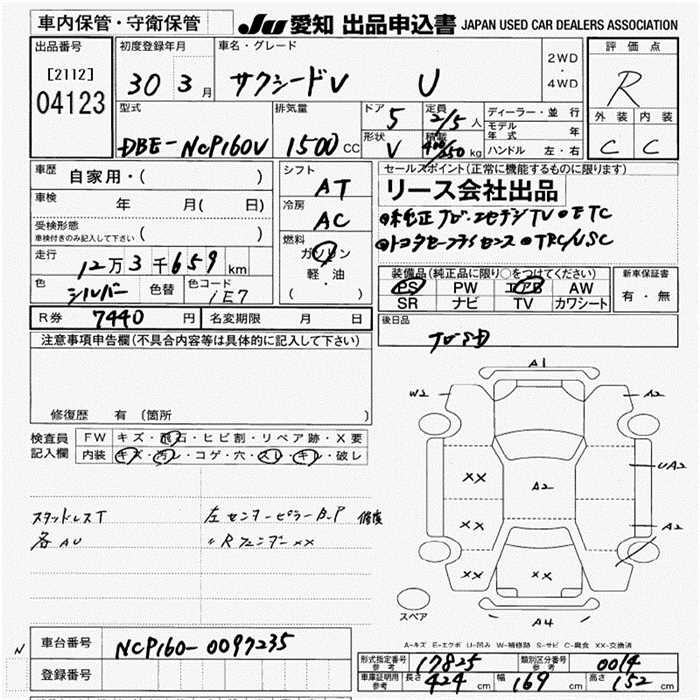 車内保管・守衛保管 JU 愛知 出品申込書 JAPAN USED CAR DEALERS ASSOCIATION
出品番号 初度登録年月 車名・グレード 評価点
[2112] 04123 30 3月 サクシードV U 2WD・4WD R
型式 排気量 ドア 5 定員 2/5人 ディーラー・並行 外装 内装
DBE-NCP160V 1500CC 形状 V 積載 400/250kg モデル年式 年 C C
ハンドル 左・右
車歴 自家用・( ) シフト AT セールスポイント(正常に機能するものに限ります)
リース会社出品
車検 年 月( 日) 冷房 AC
受検形態 車検付きのみ記入して下さい ( )
走行 12万3千659km 燃料 ガソリン 軽・油 ( )
●トヨタセーフティセンス ●TRC/VSC
色 シルバー 色替 色コード 1E7
装備品(純正品に限り○をつけてください) 新車保証書
PS PW エアB AW 有・無
SR ナビ TV カワシート
R券 7440円 名変期限 月 日 後日品
注意事項申告欄(不具合内容等は具体的に記入して下さい)
修復歴 有(箇所 )
検査員記入欄 FW キズ・飛石・ヒビ割・リペア跡・X要
内装 キズ・汚レ・コゲ・穴・スレ・キレ・破レ
A1
W2 A2
XX UA2
A2
XX A2
XX XX
A4
スペア
スタッドレスT 左センターピラーB.P 修復
各AU 〃Rフェンダーxx
A-キズ E-エクボ U-凹み W-補修跡 S-サビ C-腐食 XX-交換済
N
車台番号 NCP160-0097235
登録番号
形式指定番号 参考 17825 類別区分番号 参考 0014
車庫証明用 参考 長さ 424cm 幅 169cm 高さ 152cm